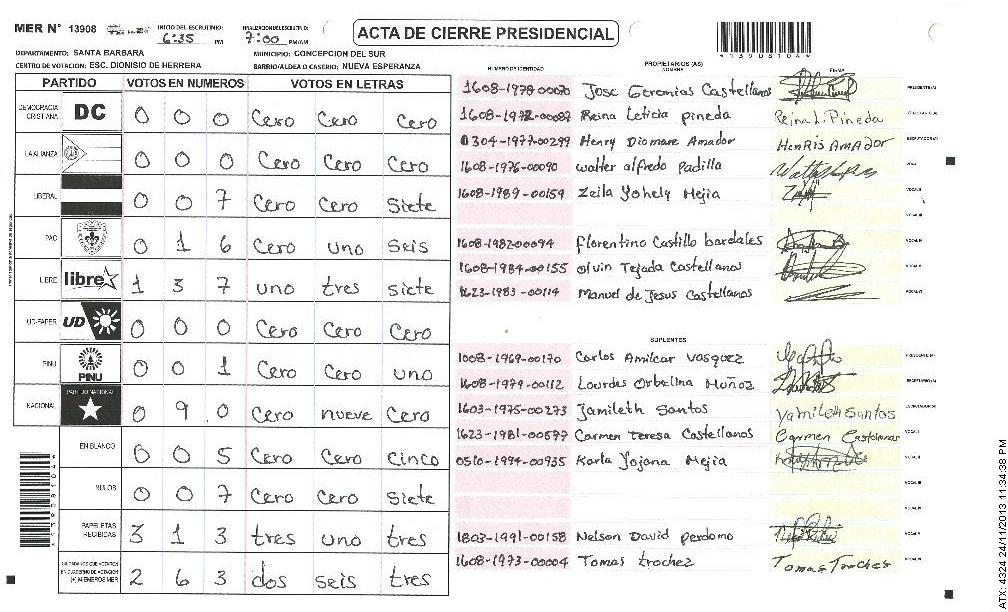 MER N° 13908
INICIO DEL ESCRUTINIO:
6:35 PM
7:00 PM/AM
ACTA DE CIERRE PRESIDENCIAL
*13908104*
DEPARTAMENTO: SANTA BARBARA
MUNICIPIO: CONCEPCION DEL SUR
CENTRO DE VOTACION: ESC. DIONISIO DE HERRERA
BARRIO/ALDEA O CASERIO: NUEVA ESPERANZA
PARTIDO VOTOS EN NUMEROS VOTOS EN LETRAS
DEMOCRACIA CRISTIANA DC 0 0 0 Cero Cero Cero
LA ALIANZA 0 0 0 Cero Cero Cero
LIBERAL 0 0 7 Cero Cero Siete
PAC 0 1 6 Cero uno seis
LIBRE libre 1 3 7 uno tres siete
UD-FAPER UD 0 0 0 Cero Cero Cero
PINU PINU 0 0 1 Cero Cero uno
NACIONAL PARTIDO NACIONAL 0 9 0 Cero nueve Cero
EN BLANCO 0 0 5 Cero Cero cinco
NULOS 0 0 7 Cero Cero Siete
PAPELETAS RECIBIDAS 3 1 3 tres uno tres
CIUDADANOS QUE VOTARON EN CUADERNO DE VOTACION (+) MIEMBROS MER 2 6 3 dos seis tres
NUMERO DE IDENTIDAD PROPIETARIOS (AS) NOMBRE FIRMA
1608-1978-00070 Jose Geremias Castellanos PRESIDENTE(A)
1608-1972-00087 Reina Leticia pineda Reina L. Pineda
0304-1977-00299 Henry Diomare Amador HenRis AmADor
1608-1976-00090 walter alfredo Padilla
1608-1989-00159 Zeila Yohely Mejia VOCAL II
VOCAL III
1608-1982-00094 florentino Castillo bardales VOCAL IV
1608-1984-00155 olvin Tejada Castellanos VOCAL V
1623-1983-00114 Manuel de Jesus Castellanos VOCAL VI
SUPLENTES
1008-1969-00170 Carlos Amilcar vasquez
1608-1979-00112 Lourdes Orbelina Muñoz
1603-1975-00273 Jamileth Santos Yamileth Santos
1623-1981-00577 Carmen Teresa Castellanos Carmen Castellanos
0510-1994-00935 Karla Yojana Mejia VOCAL II
VOCAL III
VOCAL IV
1803-1991-00158 Nelson David perdomo VOCAL V
1608-1973-00004 Tomas trochez Tomas Troches
ATX: 4324 24/11/2013 11:34:38 PM